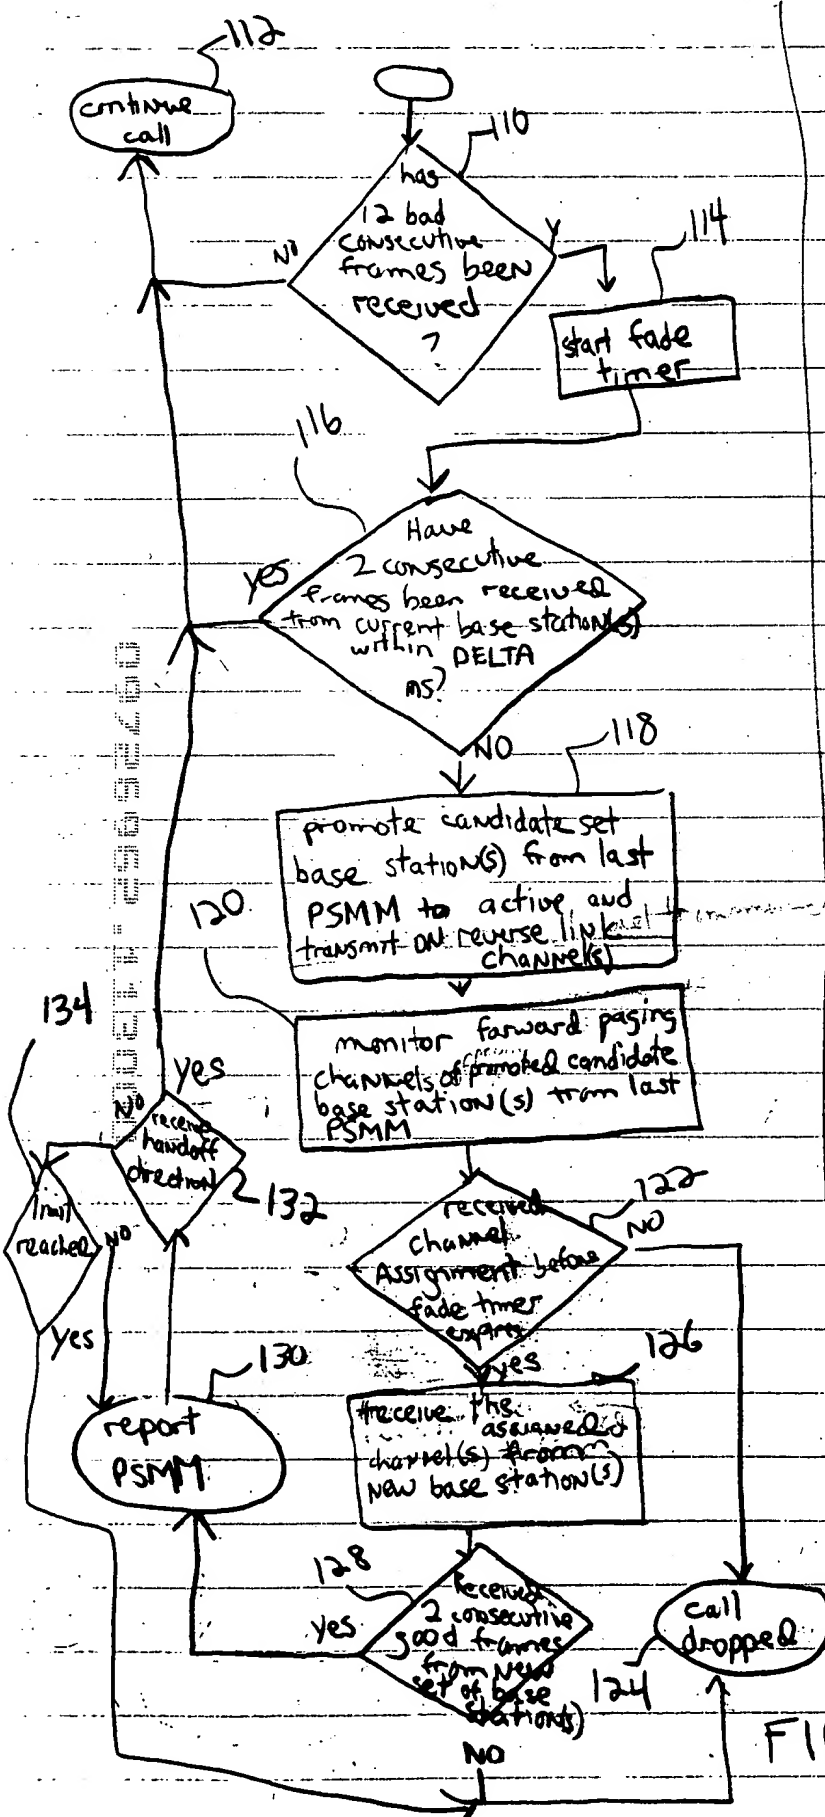 112
continue
call
110
has
12 bad
consecutive
frames been
received
?
NO
Y
114
start fade
timer
116
Have
2 consecutive
frames been received
from current base station(s)
within DELTA
ms?
yes
NO
118
promote candidate set
base station(s) from last
PSMM to active and
transmit on reverse link
channel(s)
120
monitor forward paging
channels of promoted candidate
base station(s) from last
PSMM
134
yes
NO
receive
handoff
direction
132
limit
reached
NO
yes
received
channel
Assignment before
fade timer
expires
122
NO
yes
126
130
report
PSMM
receive the
assigned
channel(s) from
new base station(s)
128
Received
2 consecutive
good frames
from new
set of base
station(s)
yes
call
dropped
124
NO
FI